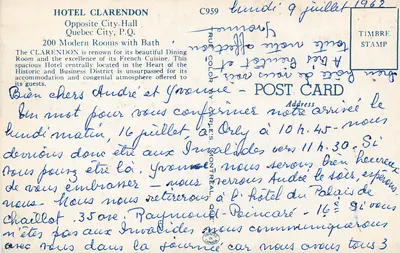 HOTEL CLARENDON
Opposite City-Hall
Quebec City, P.Q.
200 Modern Rooms with Bath
The CLARENDON is renown for its beautiful Dining
Room and the excellence of its French Cuisine. This
spacious Hotel centrally located in the Heart of the
Historic and Business District is unsurpassed for its
accommodation and congenial atmosphere offered to
its guests.
C959
lundi, 9 juillet 1962
TIMBRE
STAMP
POST CARD
Address
Bien chers André et Yvonne -
Un mot pour vous confirmer notre arrivée le
lundi matin, 16 juillet, à Orly à 10 h. 45 - nous
devrions donc être aux Invalides vers 11 h. 30 - Si
vous pouvez être là, Yvonne nous serons bien heureux
de vous embrasser - nous verrons André le soir, espérons
nous - Nous nous retirerons à l'hôtel du Palais de
Chaillot. 35 ave Raymond-Poincaré - 16e Si vous
n'êtes pas aux Invalides nous communiquerons
avec vous dans la journée car nous avons tous 3
hâte de vous voir
Toute notre affection
Yvonne